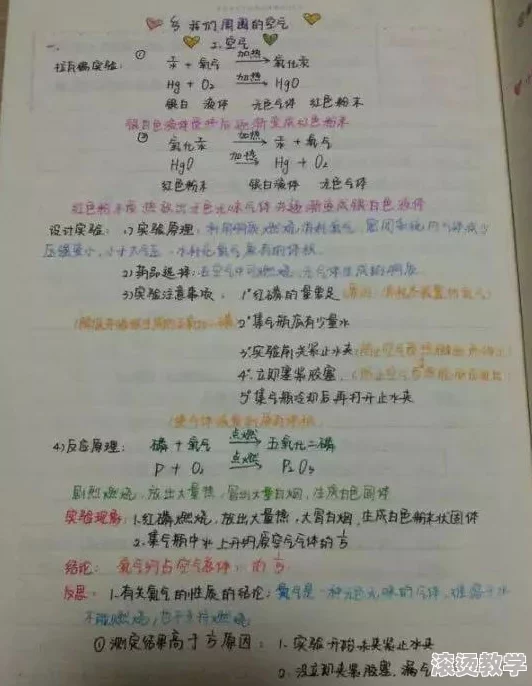 我们周围的空气
一、
2.空气
拉瓦锡实验: ① 汞 + 氧气 加热 氧化汞
Hg + O₂ 加热 HgO
银白 液体 无色气体 红色粉末
银白色液体受热后逐渐变成红色粉末
② 氧化汞 加热 汞 + 氧气
HgO 加热 Hg + O₂
红色粉末 银白液体 无色气体
红色粉末受热放出无色无味气体并逐渐变成银白色液体
设计实验: 1)实验原理:利用铜或燃烧消耗氧气,密闭系统内气体减少
压强变小,小于大气压
2)药品选择:在空气中可燃烧,无气体生成的
3)实验注意事项: 1°红磷的量要足
2°集气瓶底有少量水
3°实验前夹紧止水夹
4°立即塞紧胶塞
5°集气瓶冷却后再打开止水夹
4)反应原理: 磷 + 氧气 点燃 五氧化二磷
P + O₂ 点燃 P₂O₅
剧烈燃烧,放出大量热,冒出大量白烟,生成白色固体
实验现象:1.红磷燃烧,放出大量热,大冒白烟,生成白色粉末状固体
2.集气瓶中水上升约原空气气体的1/5
结论: 氧气约占空气总体积的1/5
反思: 1.有关氮气的性质的结论:氮气是一种无色无味的气体,难溶于水
不能燃烧,也不支持燃烧
①测定结果高于1/5原因: 1.实验开始未夹紧止水夹
2.没立即夹紧胶塞,漏气
滚烫教学